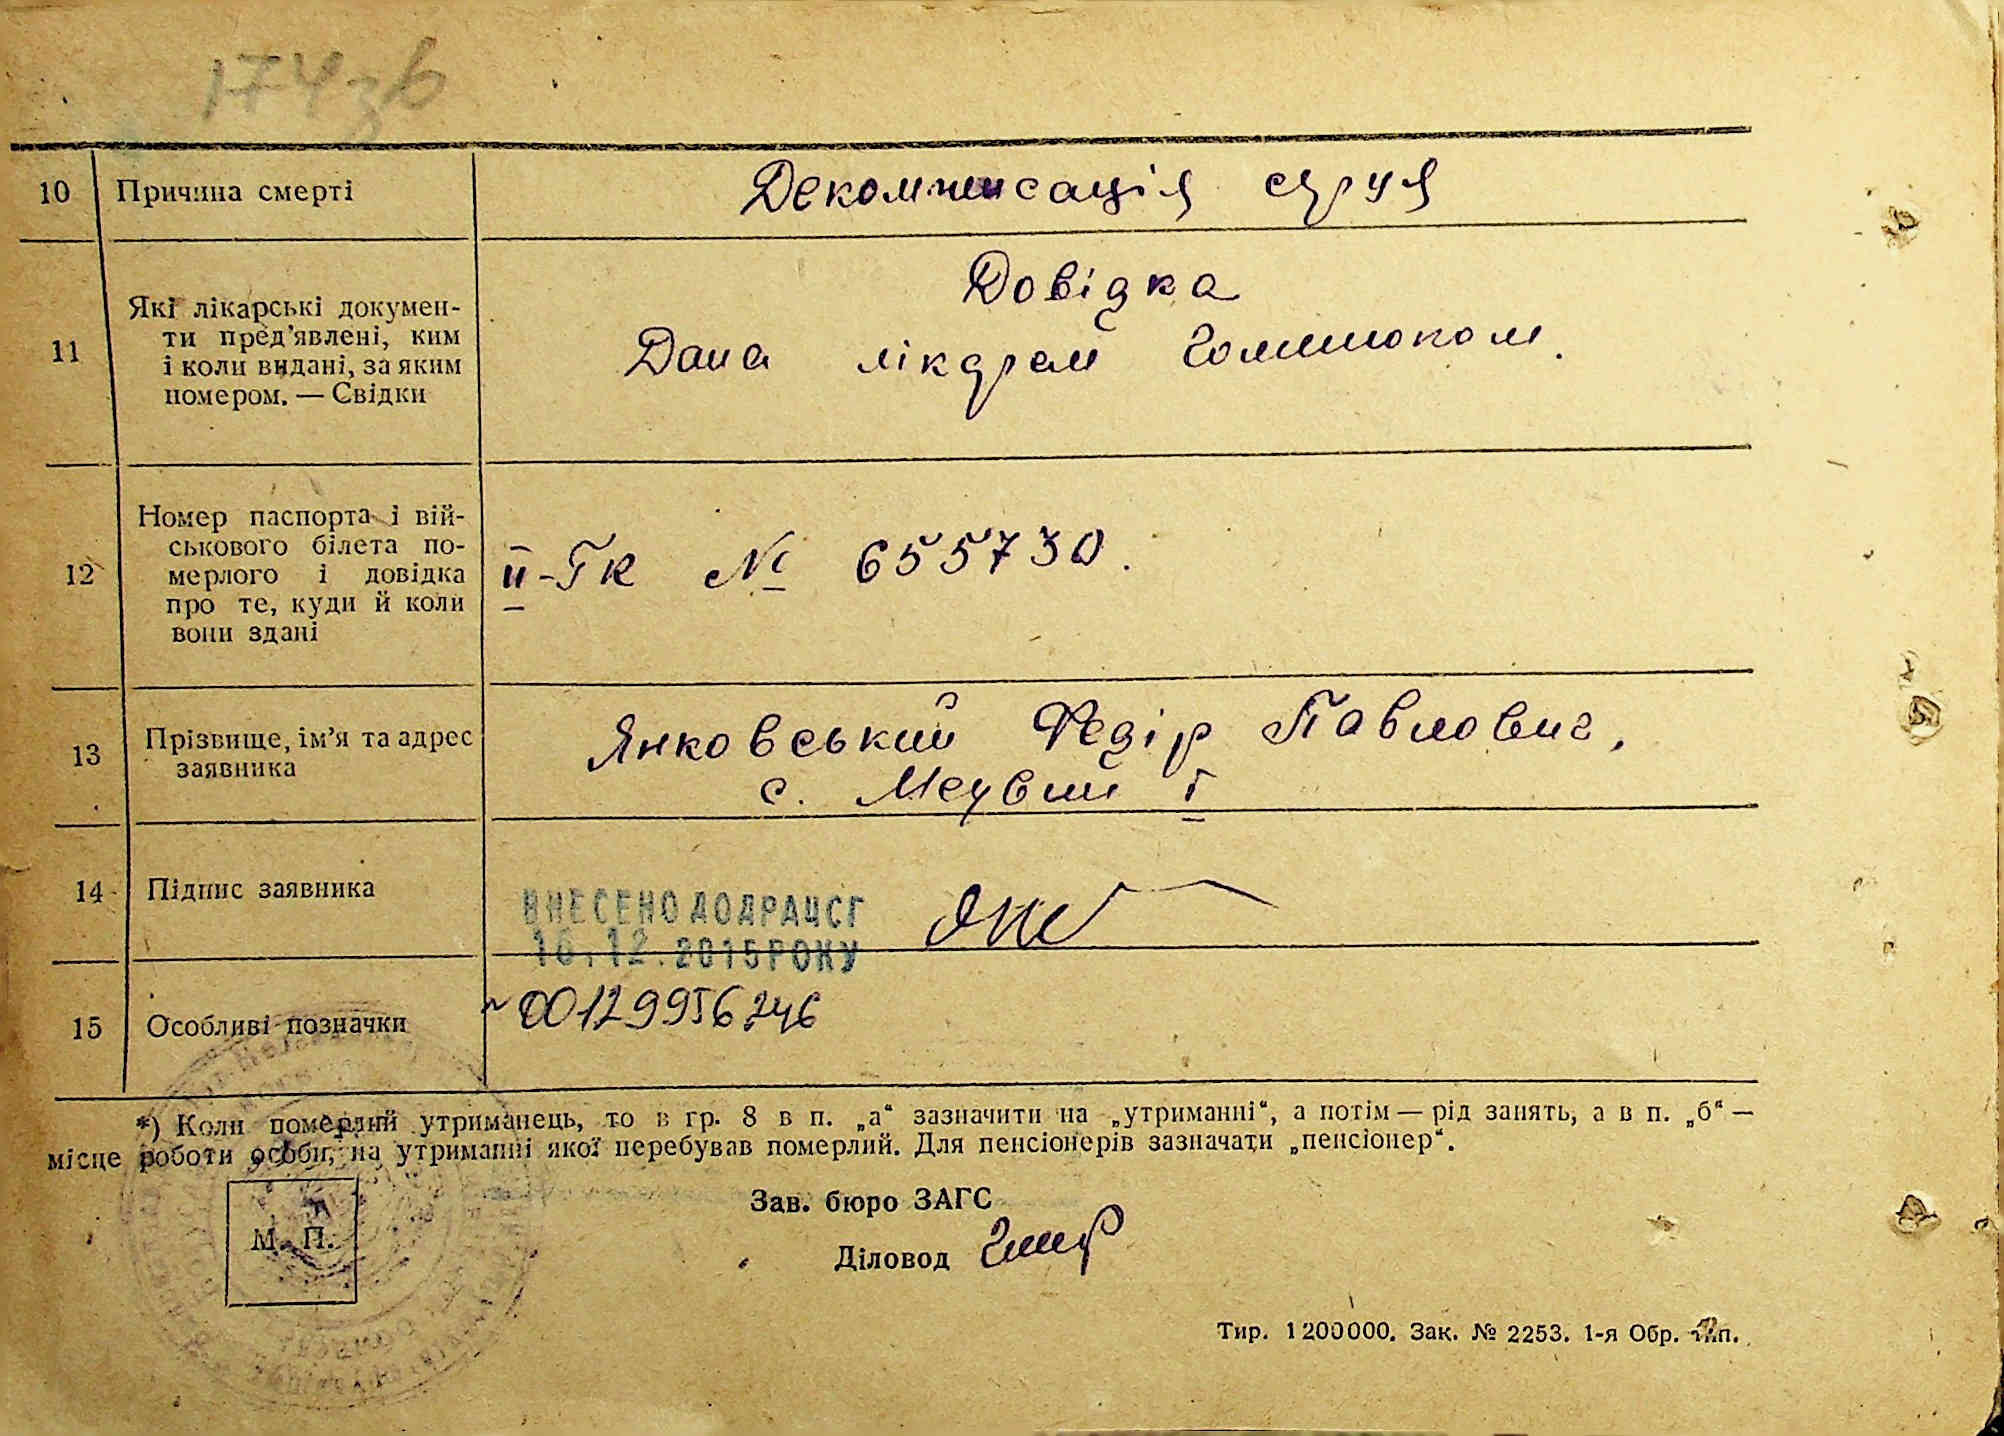 174зв
10 Причина смерті
Декомпенсація серця
11 Які лікарські докумен-
ти пред’явлені, ким
і коли видані, за яким
номером. — Свідки
Довідка
Дана лікарем
12 Номер паспорта і вій-
ськового білета по-
мерлого і довідка
про те, куди й коли
вони здані
II-ГК № 655730.
13 Прізвище, ім’я та адрес
заявника
Янковський Федір Павлович,
с. Медвин I
14 Підпис заявника
ВНЕСЕНО ДО ДРАЦСГ
16.12.2015 РОКУ
15 Особливі позначки
00129956246
*) Коли померлий утриманець, то в гр. 8 в п. „а“ зазначити на „утриманні“, а потім — рід занять, а в п. „б“ —
місце роботи особи, на утриманні якої перебував померлий. Для пенсіонерів зазначати „пенсіонер“.
М. П.
Зав. бюро ЗАГС
Діловод
Тир. 1200000. Зак. № 2253. 1-я Обр. тип.